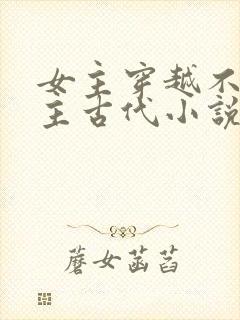 女主穿越不
主古代小説
蘑女菡萏